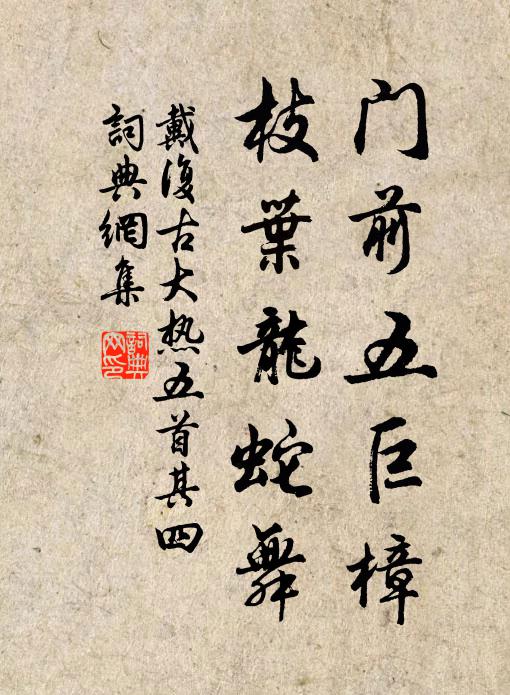 门前五巨樟
枝葉龍蛇舞
戴復古大热五首其四
詞典網集
詞典
网印